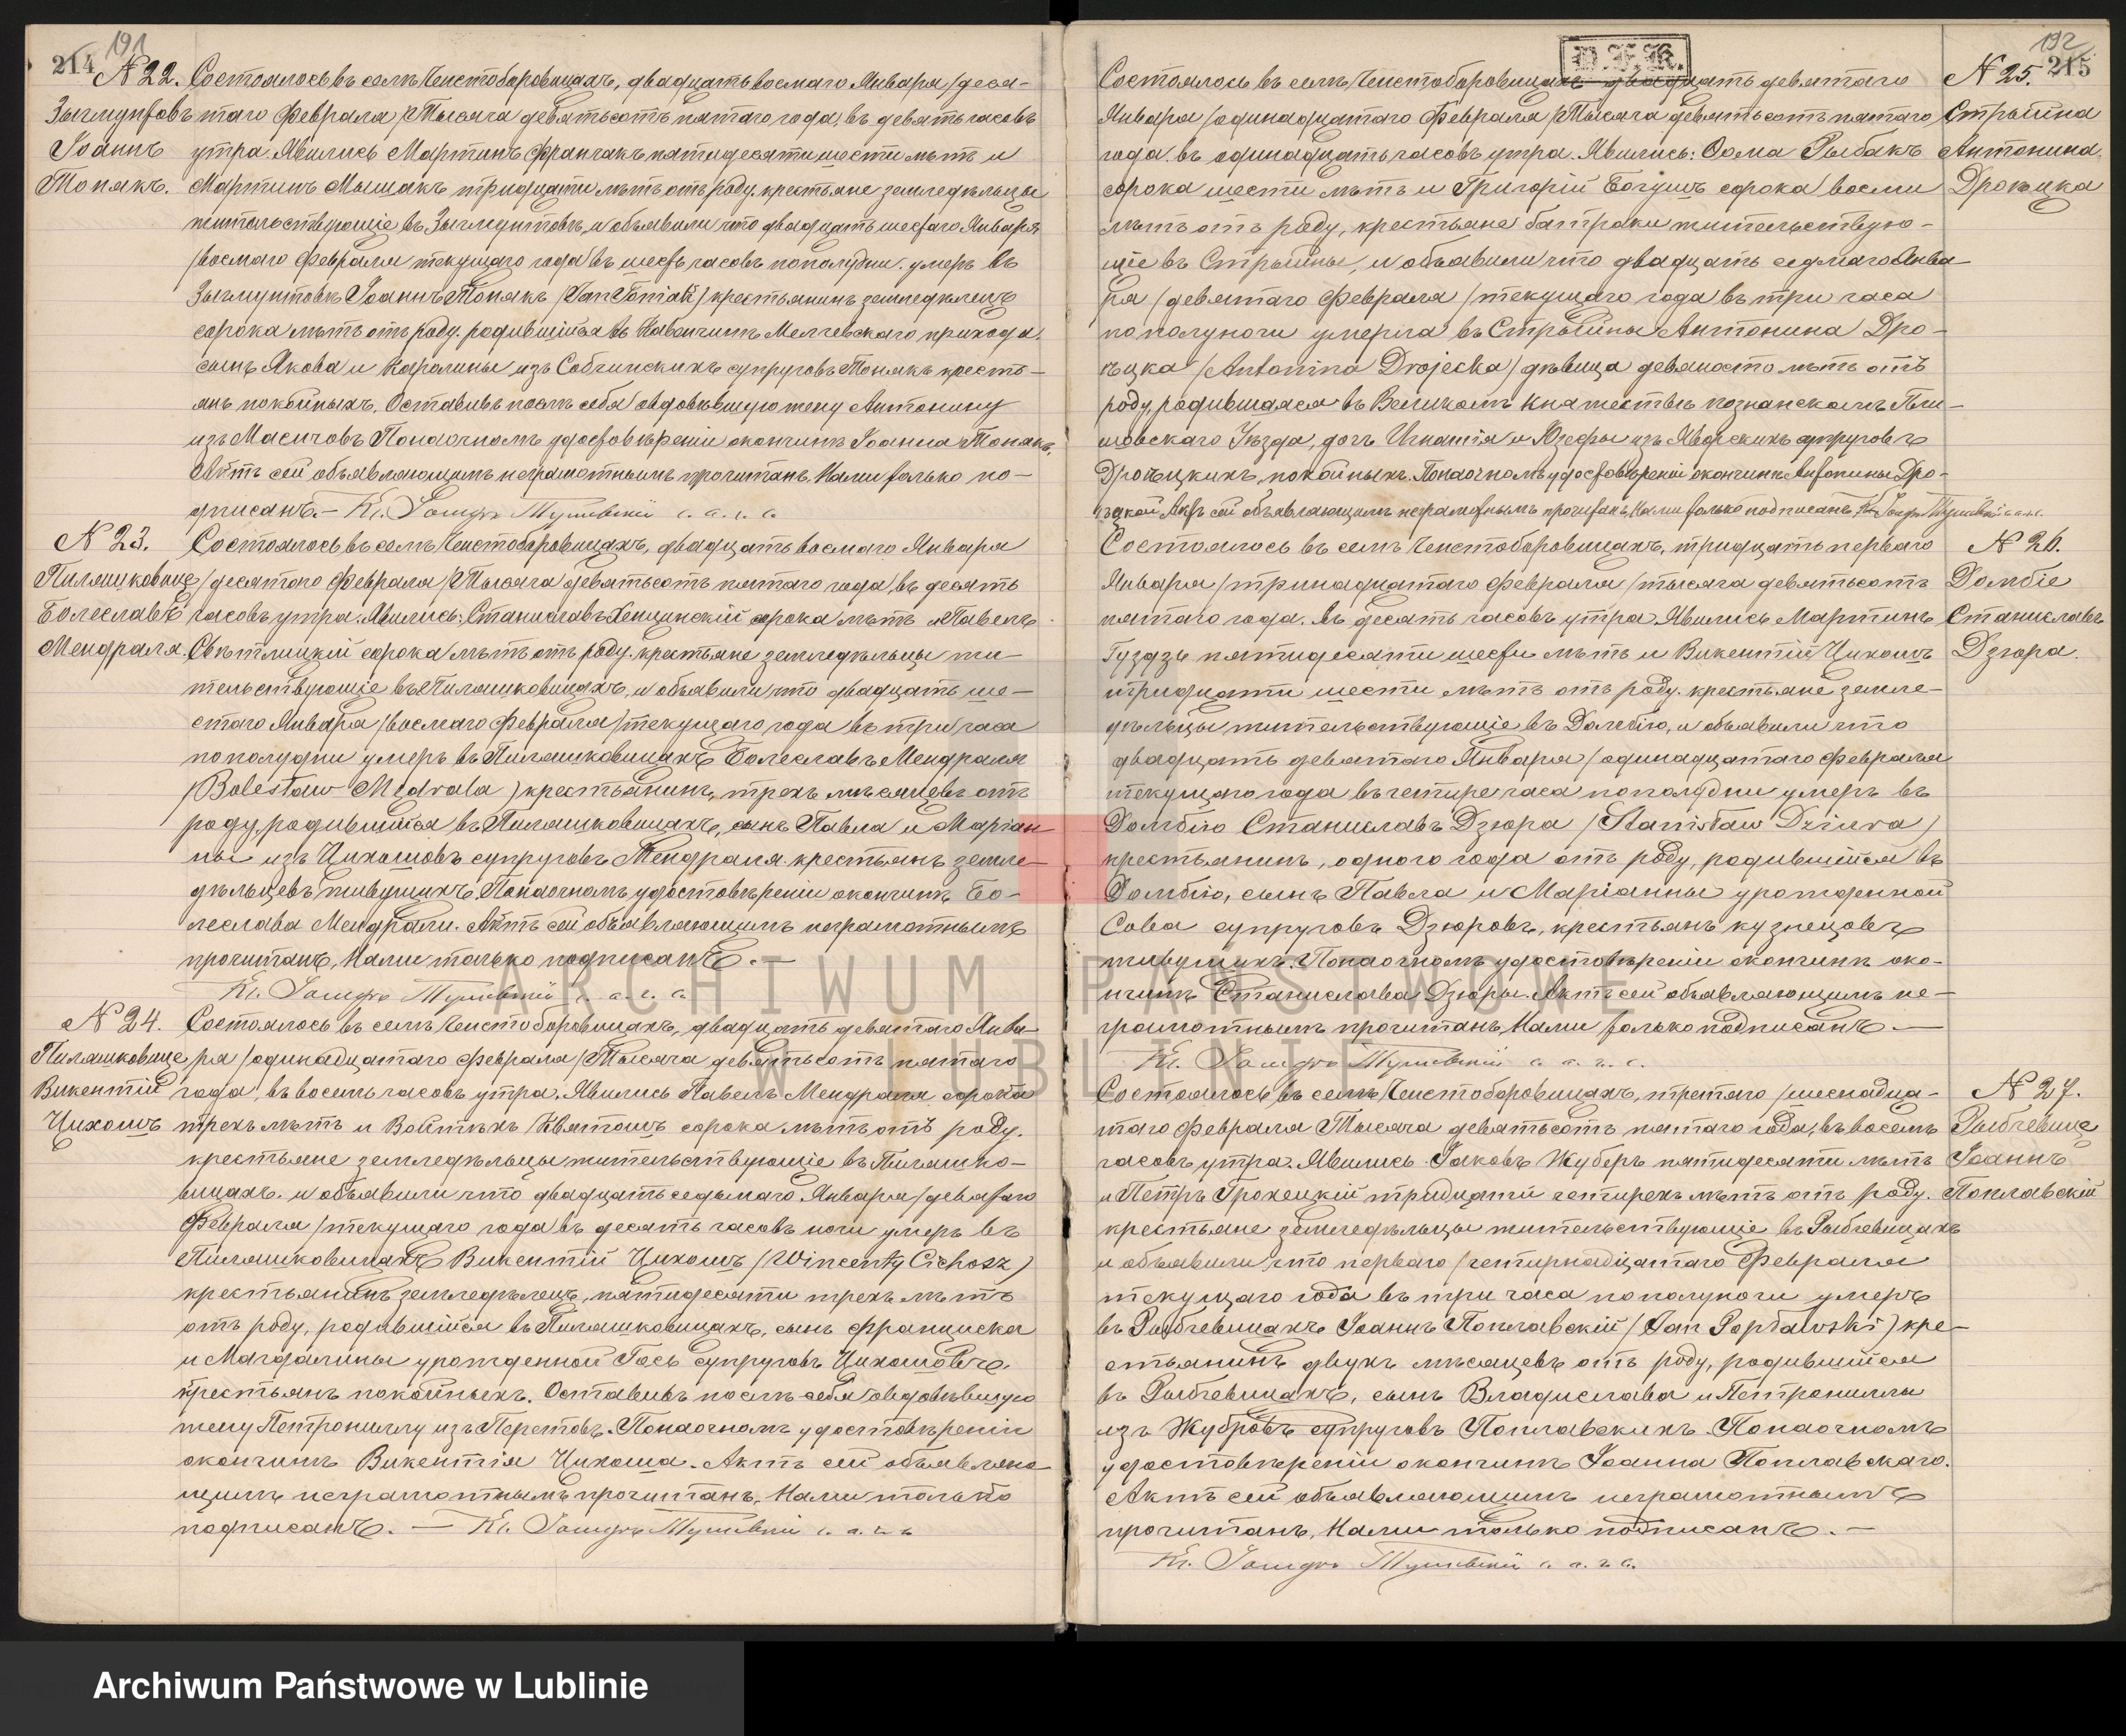 191
214
N 22.
Зыгмунтовъ
Іоаннъ
Тонякъ.
Состоялось въ селѣ Чистоборовицахъ, двадцать восьмаго Января /деся-
таго Февраля/ Тысяча девятьсотъ пятаго года, въ девять часовъ
утра. Явились Мартинъ Франчакъ пятидесяти шести лѣтъ и
Мартинъ Мышакъ тридцати лѣтъ отъ роду, крестьяне земледѣльцы
жительствующіе въ Зыгмунтовѣ, и объявили что двадцать шестаго Января
/восьмаго Февраля текущаго года въ шесть часовъ пополудни, умеръ въ
Зыгмунтовѣ Іоаннъ Тонякъ /Jan Toniak/ крестьянинъ земледѣлецъ
сорока лѣтъ отъ роду, родившійся въ Мелгевскаго прихода,
сынъ Якова и Каролины изъ Собчинскихъ супруговъ Тонякъ кресть-
янъ покойныхъ. Оставивъ послѣ себя овдовѣвшую жену Антонину
изъ Масичовъ. Понаочномъ удостовѣреніи кончинѣ Іоанна Тоняка,
Актъ сей объявляющимъ неграмотнымъ прочитанъ, Нами только по-
дписанъ.— Кс.
N 23.
Пиляшковице
Болеславъ
Мендраля.
Состоялось въ селѣ Чистоборовицахъ, двадцать восьмаго Января
/десятого Февраля/ Тысяча девятьсотъ пятаго года, въ десять
часовъ утра. Явились: Станиславъ Хенцинскій сорока лѣтъ и Павелъ
Свѣтлицкій сорока лѣтъ отъ роду, крестьяне земледѣльцы жи-
тельствующіе въ Пиляшковицахъ, и объявили что двадцать ше-
стаго Января /восьмаго Февраля/ текущаго года въ три часа
пополудни умеръ въ Пиляшковицахъ Болеславъ Мендраля
/Bolesław Mędrala/ крестьянинъ, трехъ мѣсяцевъ отъ
роду, родившійся въ Пиляшковицахъ, сынъ Павла и Маріан-
ны изъ Цихошовъ супруговъ Мендраля крестьянъ земле-
дѣльцевъ живущихъ. Понаочномъ удостовѣреніи окончинѣ Бо-
леслава Мендрали. Актъ сей объявляющимъ неграмотнымъ
прочитанъ, Нами только подписанъ.—
Кс.
N 24.
Пиляшковице
Викентій
Цихошъ
Состоялось въ селѣ Чистоборовицахъ, двадцать девятаго Янва-
ря /одинадцатаго Февраля/ Тысяча девятьсотъ пятаго
года, въ восемь часовъ утра. Явились Павелъ Мендраля сорока
трехъ лѣтъ и Войтѣхъ Квятошъ сорока лѣтъ отъ роду.
крестьяне земледѣльцы жительствующіе въ Пиляшко-
вицахъ. и объявили что двадцать седьмаго Января /девятаго
Февраля/ текущаго года въ десять часовъ ночи умеръ въ
Пиляшковицахъ Викентій Цихошъ /Wincenty Cichosz/
крестьянинъ земледѣлецъ, пятидесяти трехъ лѣтъ
отъ роду, родившійся въ Пиляшковицахъ, сынъ Франциска
и Магдалины урожденной Гось супруговъ Цихошовъ
крестьянъ покойныхъ. Оставивъ послѣ себя овдовѣвшую
жену Петрониллу изъ Перстовъ. Понаочномъ удостовѣреніи
окончинѣ Викентія Цихоша. Актъ сей объявляю-
щимъ неграмотнымъ прочитанъ, Нами только
подписанъ. — Кс.
192
215
N 25.
Стрыйна
Антонина
Дроецка
Состоялось въ селѣ Чистоборовицахъ двадцать девятаго
Января /одинадцатаго Февраля/ Тысяча девятьсотъ пятаго
года. въ одинадцать часовъ утра. Явились: Ѳома Рыбакъ
сорока шести лѣтъ и Григорій Богушъ сорока восьми
лѣтъ отъ роду, крестьяне батраки жительствую-
щіе въ Стрыйны, и объявили что двадцать седмаго Янва-
ря /девятаго Февраля/ текущаго года въ три часа
пополуночи умерла въ Стрыйны Антонина Дро-
ѣцка /Antonina Drojecka/ дѣвица девяносто лѣтъ отъ
роду, родившаяся въ Великомъ Княжествѣ познанскомъ
Уѣзда, дочь Игнатія и Юзефы изъ Яворскихъ супруговъ
Дроѣцкихъ, покойныхъ. Понаочномъ удостовѣреніи окончинѣ Антонины Дро-
ѣцкой Актъ сей объявляющимъ неграмотнымъ прочитанъ, Нами только подписанъ.
N 26.
Домбіе
Станиславъ
Дзюра.
Состоялось въ селѣ Чистоборовицахъ, тридцать перваго
Января /тринадцатаго Февраля/ тысяча девятьсотъ
пятаго года. въ десять часовъ утра. Явились Мартинъ
Гуздзь пятидесяти шести лѣтъ и Викентій Цихошъ
тридцати шести лѣтъ отъ роду. крестьяне земле-
дѣльцы жительствующіе въ Домбію, и объявили что
двадцать девятаго Января /одинадцатаго Февраля
текущаго года въ четыре часа пополудни умеръ въ
Домбію Станиславъ Дзюра /Stanisław Dziura/
крестьянинъ, одного года отъ роду, родившійся въ
Домбію, сынъ Павла и Маріанны урожденной
Сова супруговъ Дзюровъ, крестьянъ кузнецовъ
живущихъ. Понаочномъ удостовѣреніи окончинѣ око-
нчинѣ Станислава Дзюры. Актъ сей объявляющимъ не-
грамотнымъ прочитанъ, Нами только подписанъ.—
Кс.
N 27.
Рыбчевице
Іоаннъ
Поплавскій
Состоялось въ селѣ Чистоборовицахъ, третяго /шеснадца-
таго Февраля Тысяча девятьсотъ пятаго года, въ восемь
часовъ утра. Явились Іаковъ Жуберъ пятидесяти лѣтъ
и Петръ Грохецкій тридцати четырехъ лѣтъ отъ роду.
крестьяне земледѣльцы жительствующіе въ Рыбчевицахъ
и объявили что перваго /четырнадцатаго Февраля
текущаго года въ три часа пополуночи умеръ
въ Рыбчевицахъ Іоаннъ Поплавскій /Jan Popławski/ кре-
стьянинъ двухъ мѣсяцевъ отъ роду, родившійся
въ Рыбчевицахъ, сынъ Владислава и Петрониллы
изъ Жубровъ супруговъ Поплавскихъ. Понаочномъ
удостовѣреніи окончинѣ Іоанна Поплавскаго.
Актъ сей объявляющимъ неграмотнымъ
прочитанъ, Нами только подписанъ.—
Кс.
ARCHIWUM PAŃSTWOWE
W LUBLINIE
Archiwum Państwowe w Lublinie